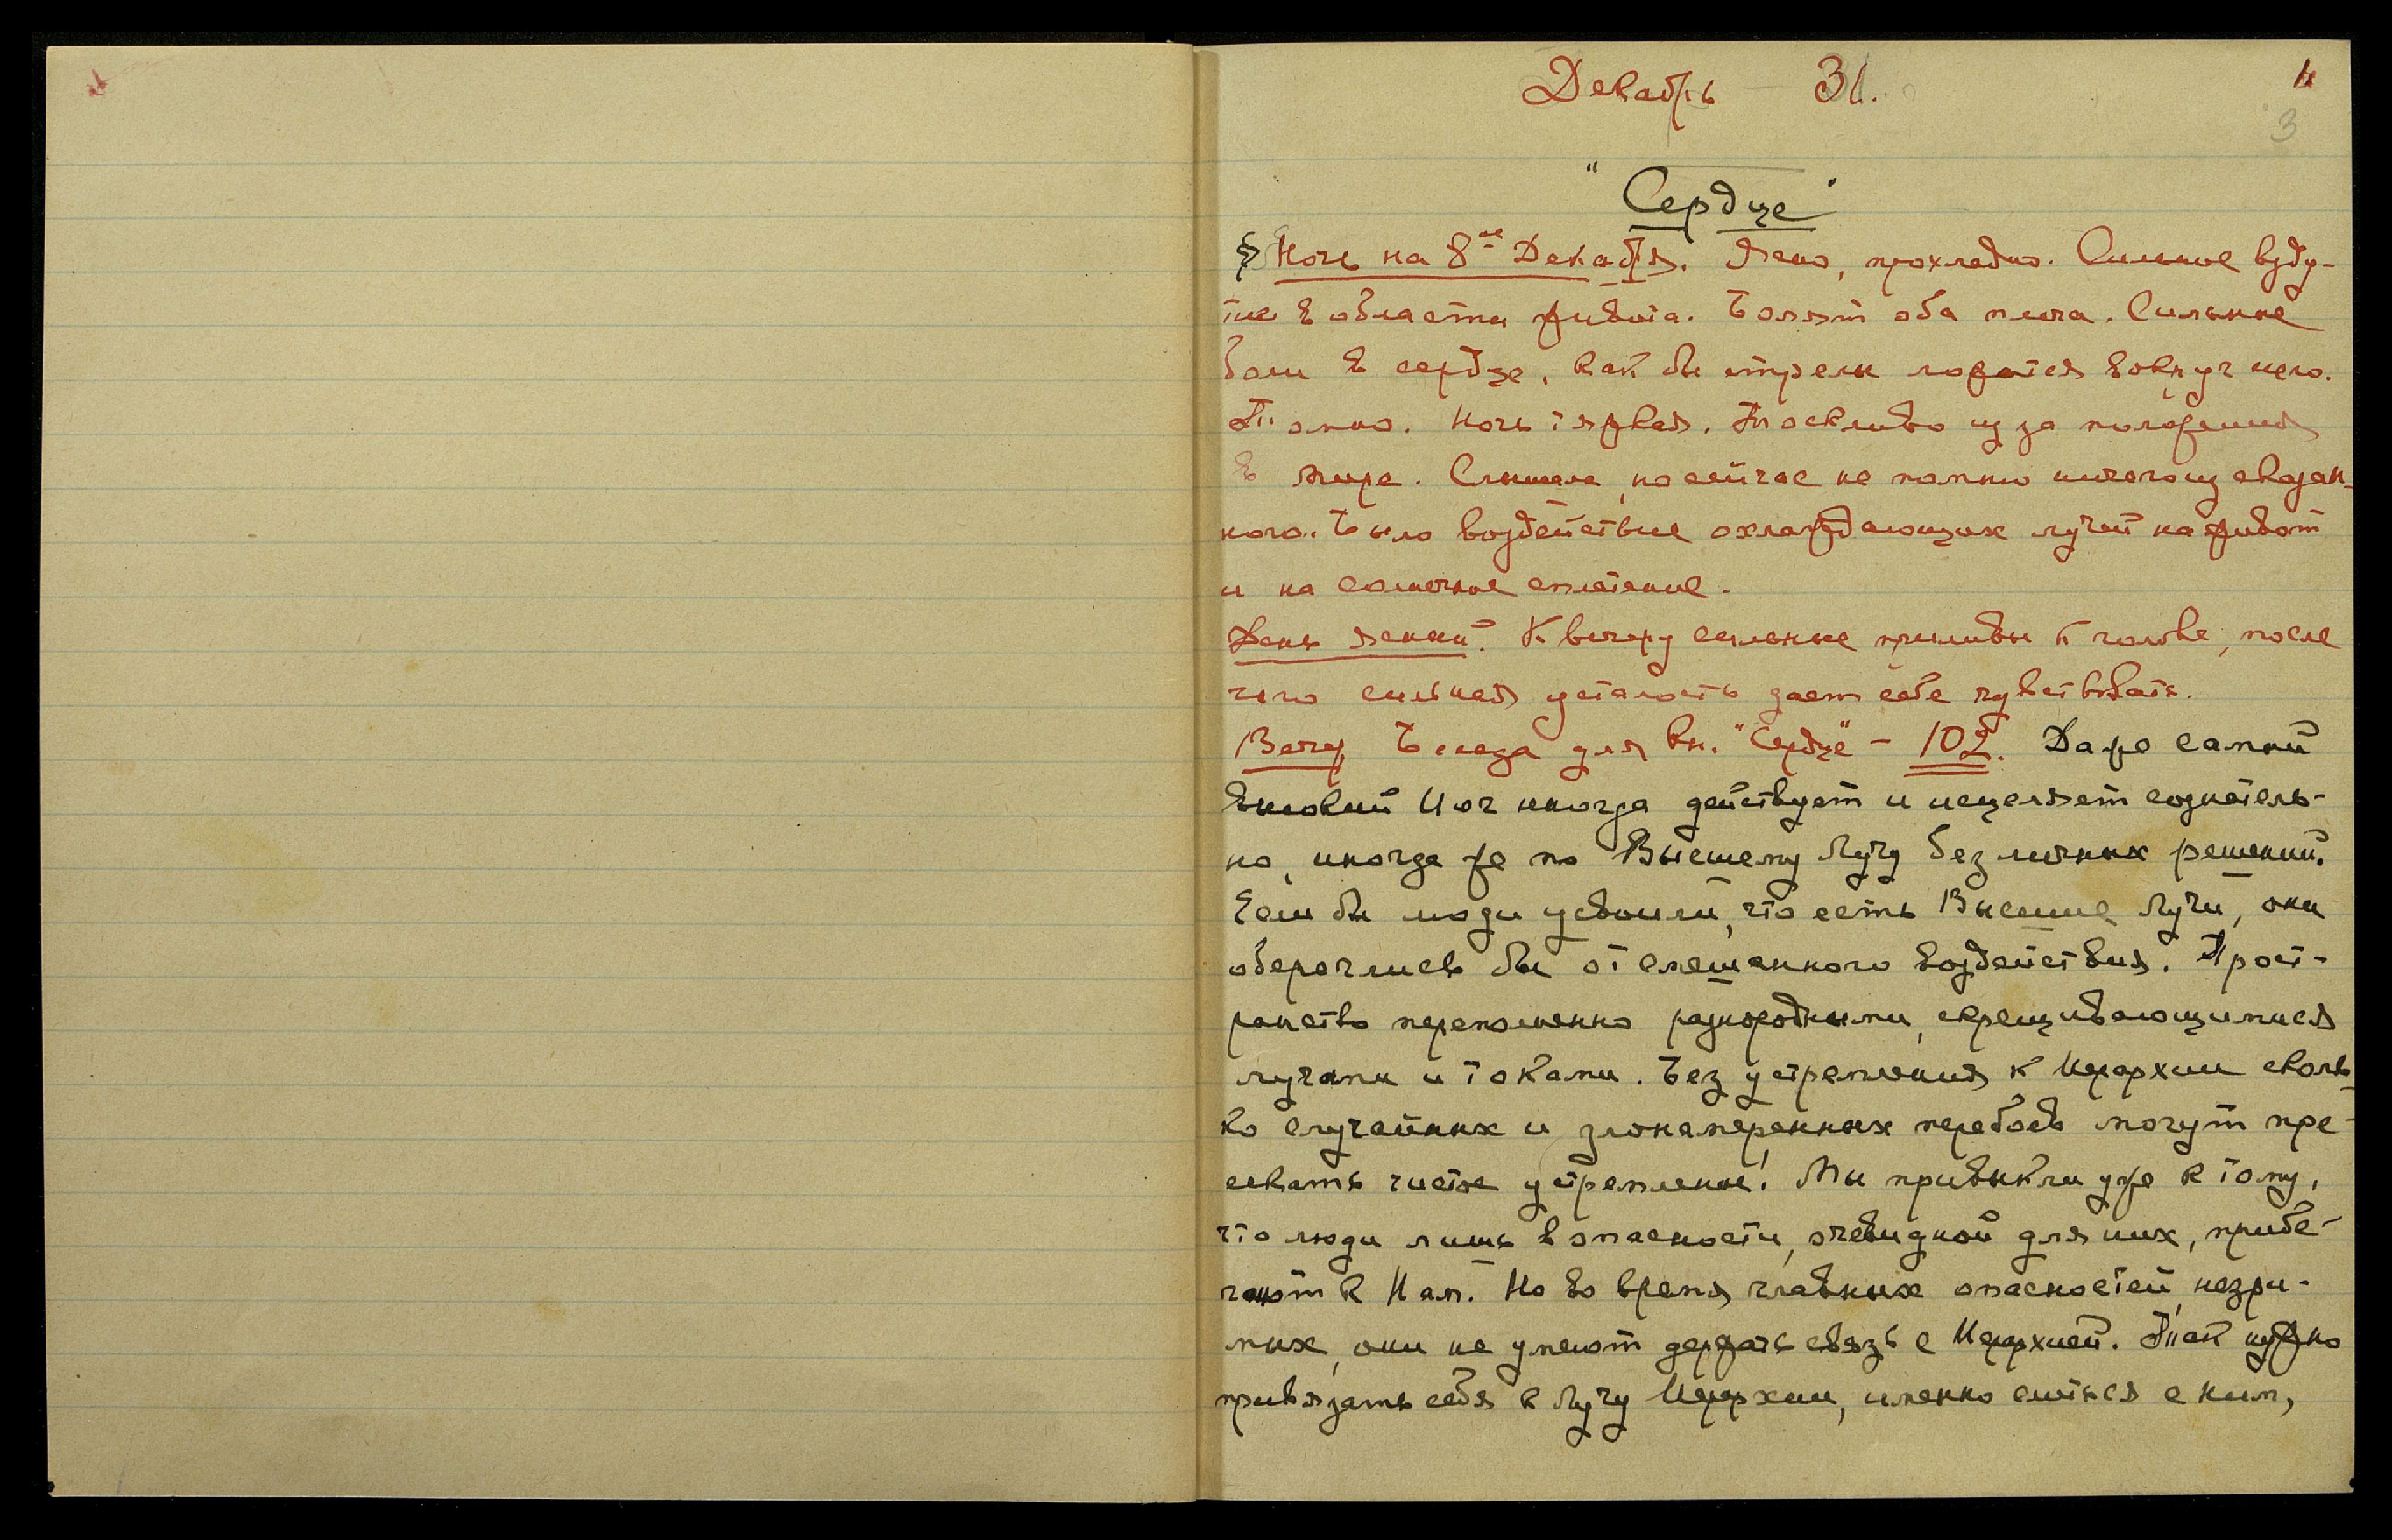 Декабрь – 31.
1
3
"Сердце"
§ Ночь на 8ое Декабря. Ясно, прохладно. Сильное взду-
тие в области живота. Болят оба плеча. Сильные
боли в сердце, как бы стрелы ложатся вокруг него.
Томно. Ночь тяжкая. Тоскливо из за положения
в мире. Слышала, но сейчас не помню ничего из сказан-
ного. Было воздействие охлаждающих лучей на живот
и на солнечное сплетение.
День ясный. К вечеру сильные приливы к голове, после
чего сильная усталость дает себе чувствовать.
Вечер, Беседа для кн. "Сердце" – 102. Даже самый
высокий Йог иногда действует и исцеляет сознатель-
но, иногда же по Высшему Лучу без личных решений.
Если бы люди усвоили, что есть Высшие Лучи, они
обереглись бы от смешанного воздействия. Прост-
ранство переполненно разнородными, скрещивающимися
лучами и токами. Без устремления к Иерархии сколь-
ко случайных и злонамеренных перебоев могут пре-
секать чистое устремление! Мы привыкли уже к тому,
что люди лишь в опасности, очевидной для них, прибе-
гают к Нам. Но во время главных опасностей, незри-
мых, они не умеют держать связь с Иерархией. Так нужно
привязать себя к Лучу Иерархии, именно слиться с ним,